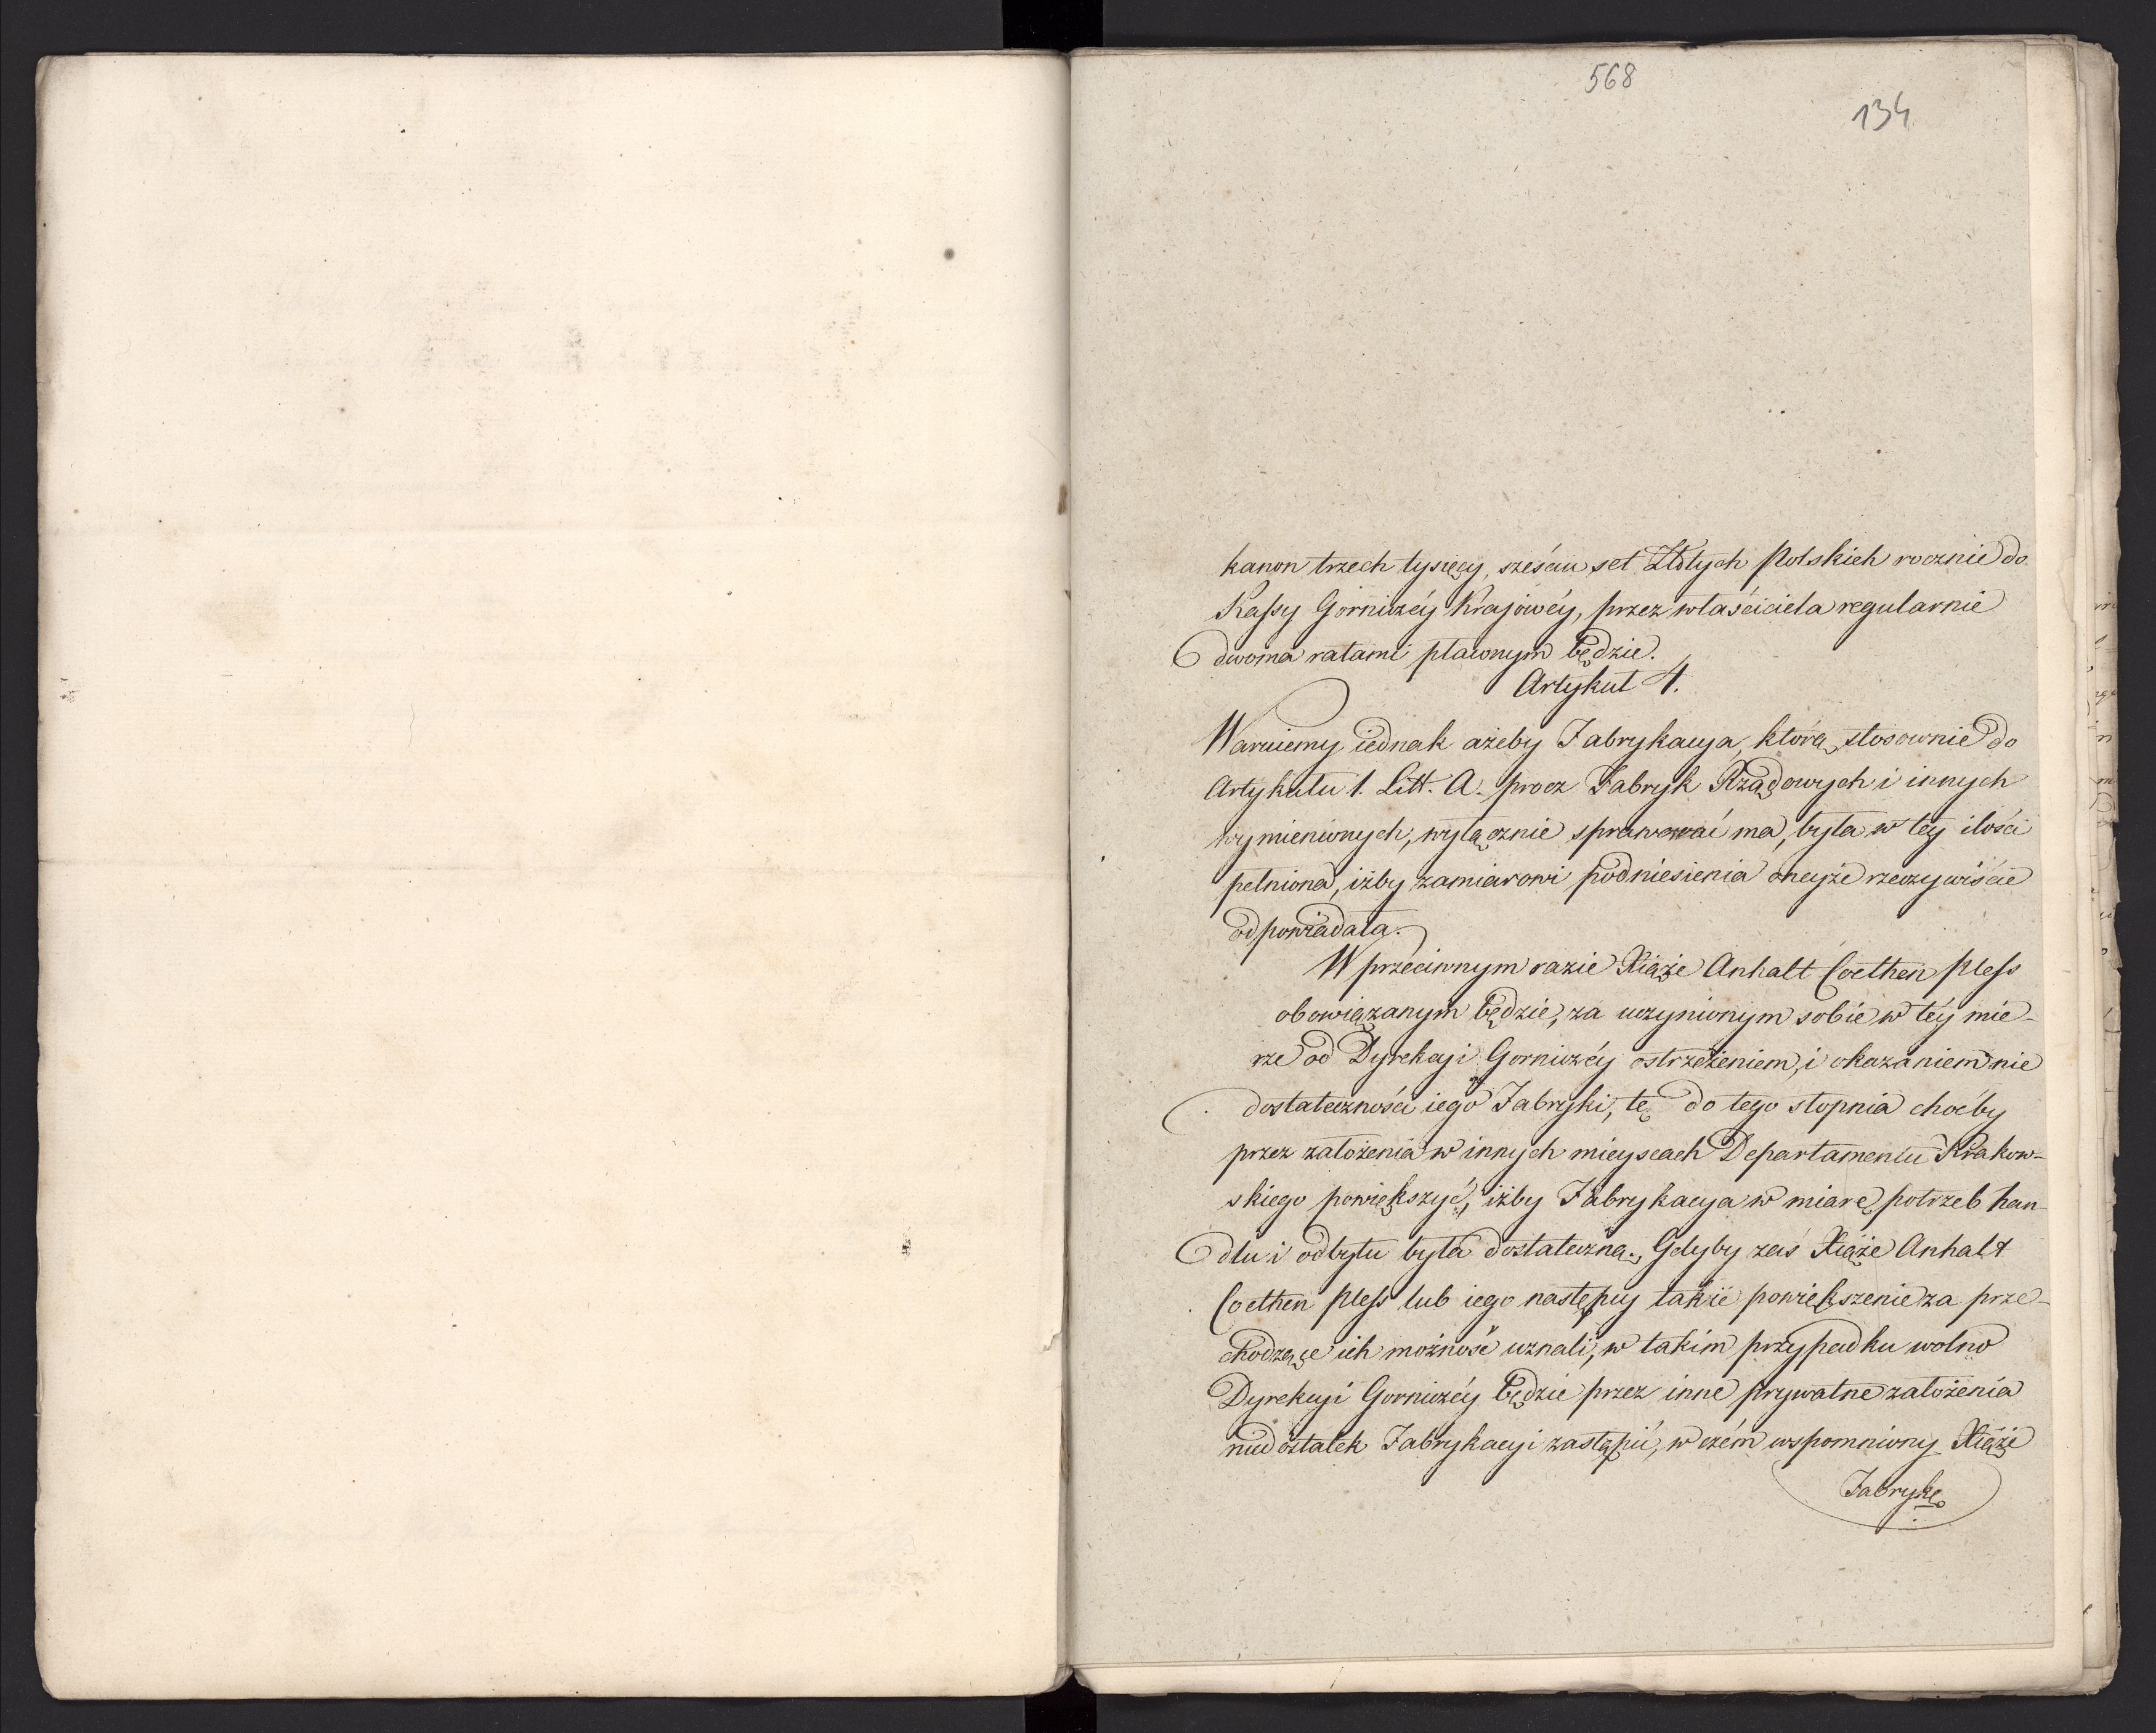 568
134
kanon trzech tysięcy, sześciu set Złotych Polskich rocznie do
Kassy Gorniczéy Krajowéy, przez właściciela regularnie
dwoma ratami płaconym będzie.
Artykuł 4.
Waruiemy iednak ażeby Fabrykacya, którą stosownie do
Artykułu 1. Litt. A. procz Fabryk Rządowych i innych
wymienionych, wyłącznie sprawować ma, była w téy ilości
pełniona, iżby zamiarowi podniesienia oneyże rzeczywiście
odpowiadała.
W przeciwnym razie Xiąże Anhalt Coethen Pless
obowiązanym będzie, za uczynionym sobie w téy mie-
rze od Dyrekcyi Gorniczéy ostrzeżeniem, i okazaniem nie
dostateczności iego Fabryki, tę do tego stopnia choćby
przez założenia w innych mieyscach Departamentu Krakow-
skiego powiększyć, iżby Fabrykacya w miarę potrzeb han-
dlu i odbytu była dostateczną. Gdyby zaś Xiąże Anhalt
Coethen Pless lub iego następcy takie powiększenie za prze-
chodzące ich możność uznali, w takim przypadku wolno
Dyrekcyi Gorniczéy będzie przez inne prywatne założenia
niedostatek Fabrykacyi zastąpić, w czém wspomniony Xiąże
Fabrykę